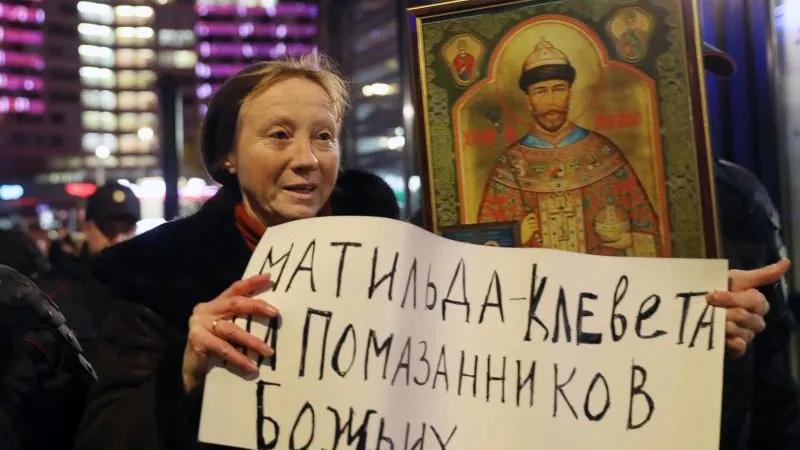 МАТИЛЬДА-КЛЕВЕТА
НА ПОМАЗАННИКОВ
БОЖЬИХ